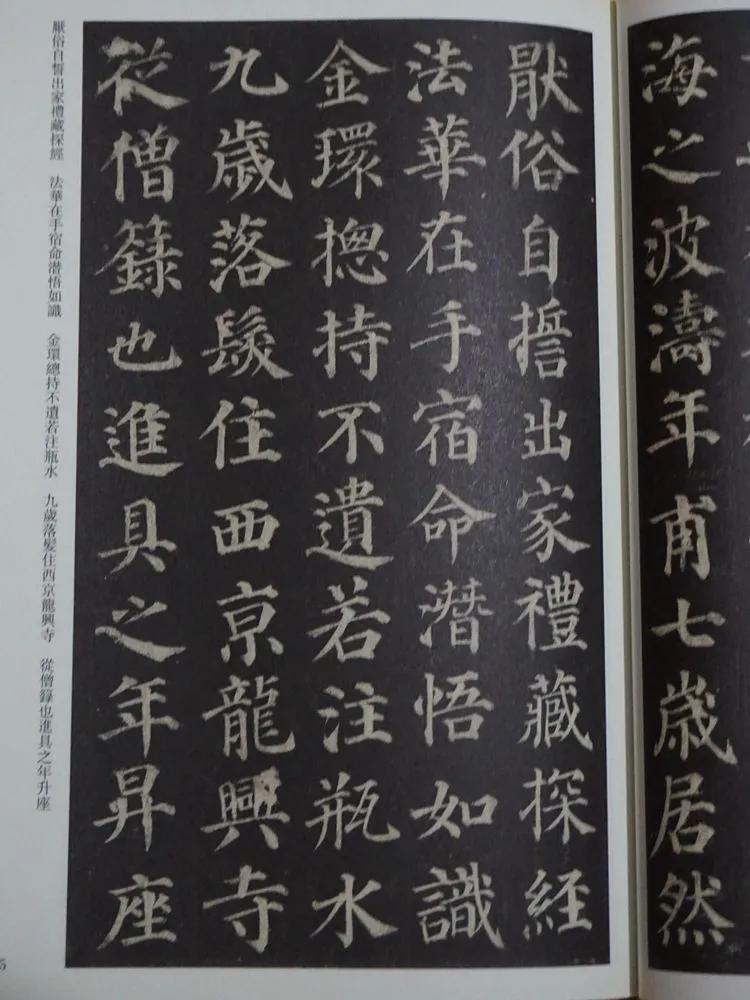 海之波濤年甫七歲居然
厭俗自誓出家禮藏探經
法華在手宿命潛悟如識
金環揔持不遺若注瓶水
九歲落髮住西京龍興寺
從僧籙也進具之年昇座
厭俗自誓出家禮藏探經　法華在手宿命潛悟如識　金環總持不遺若注瓶水　九歲落髮住西京龍興寺　從僧籙也進具之年升座
5